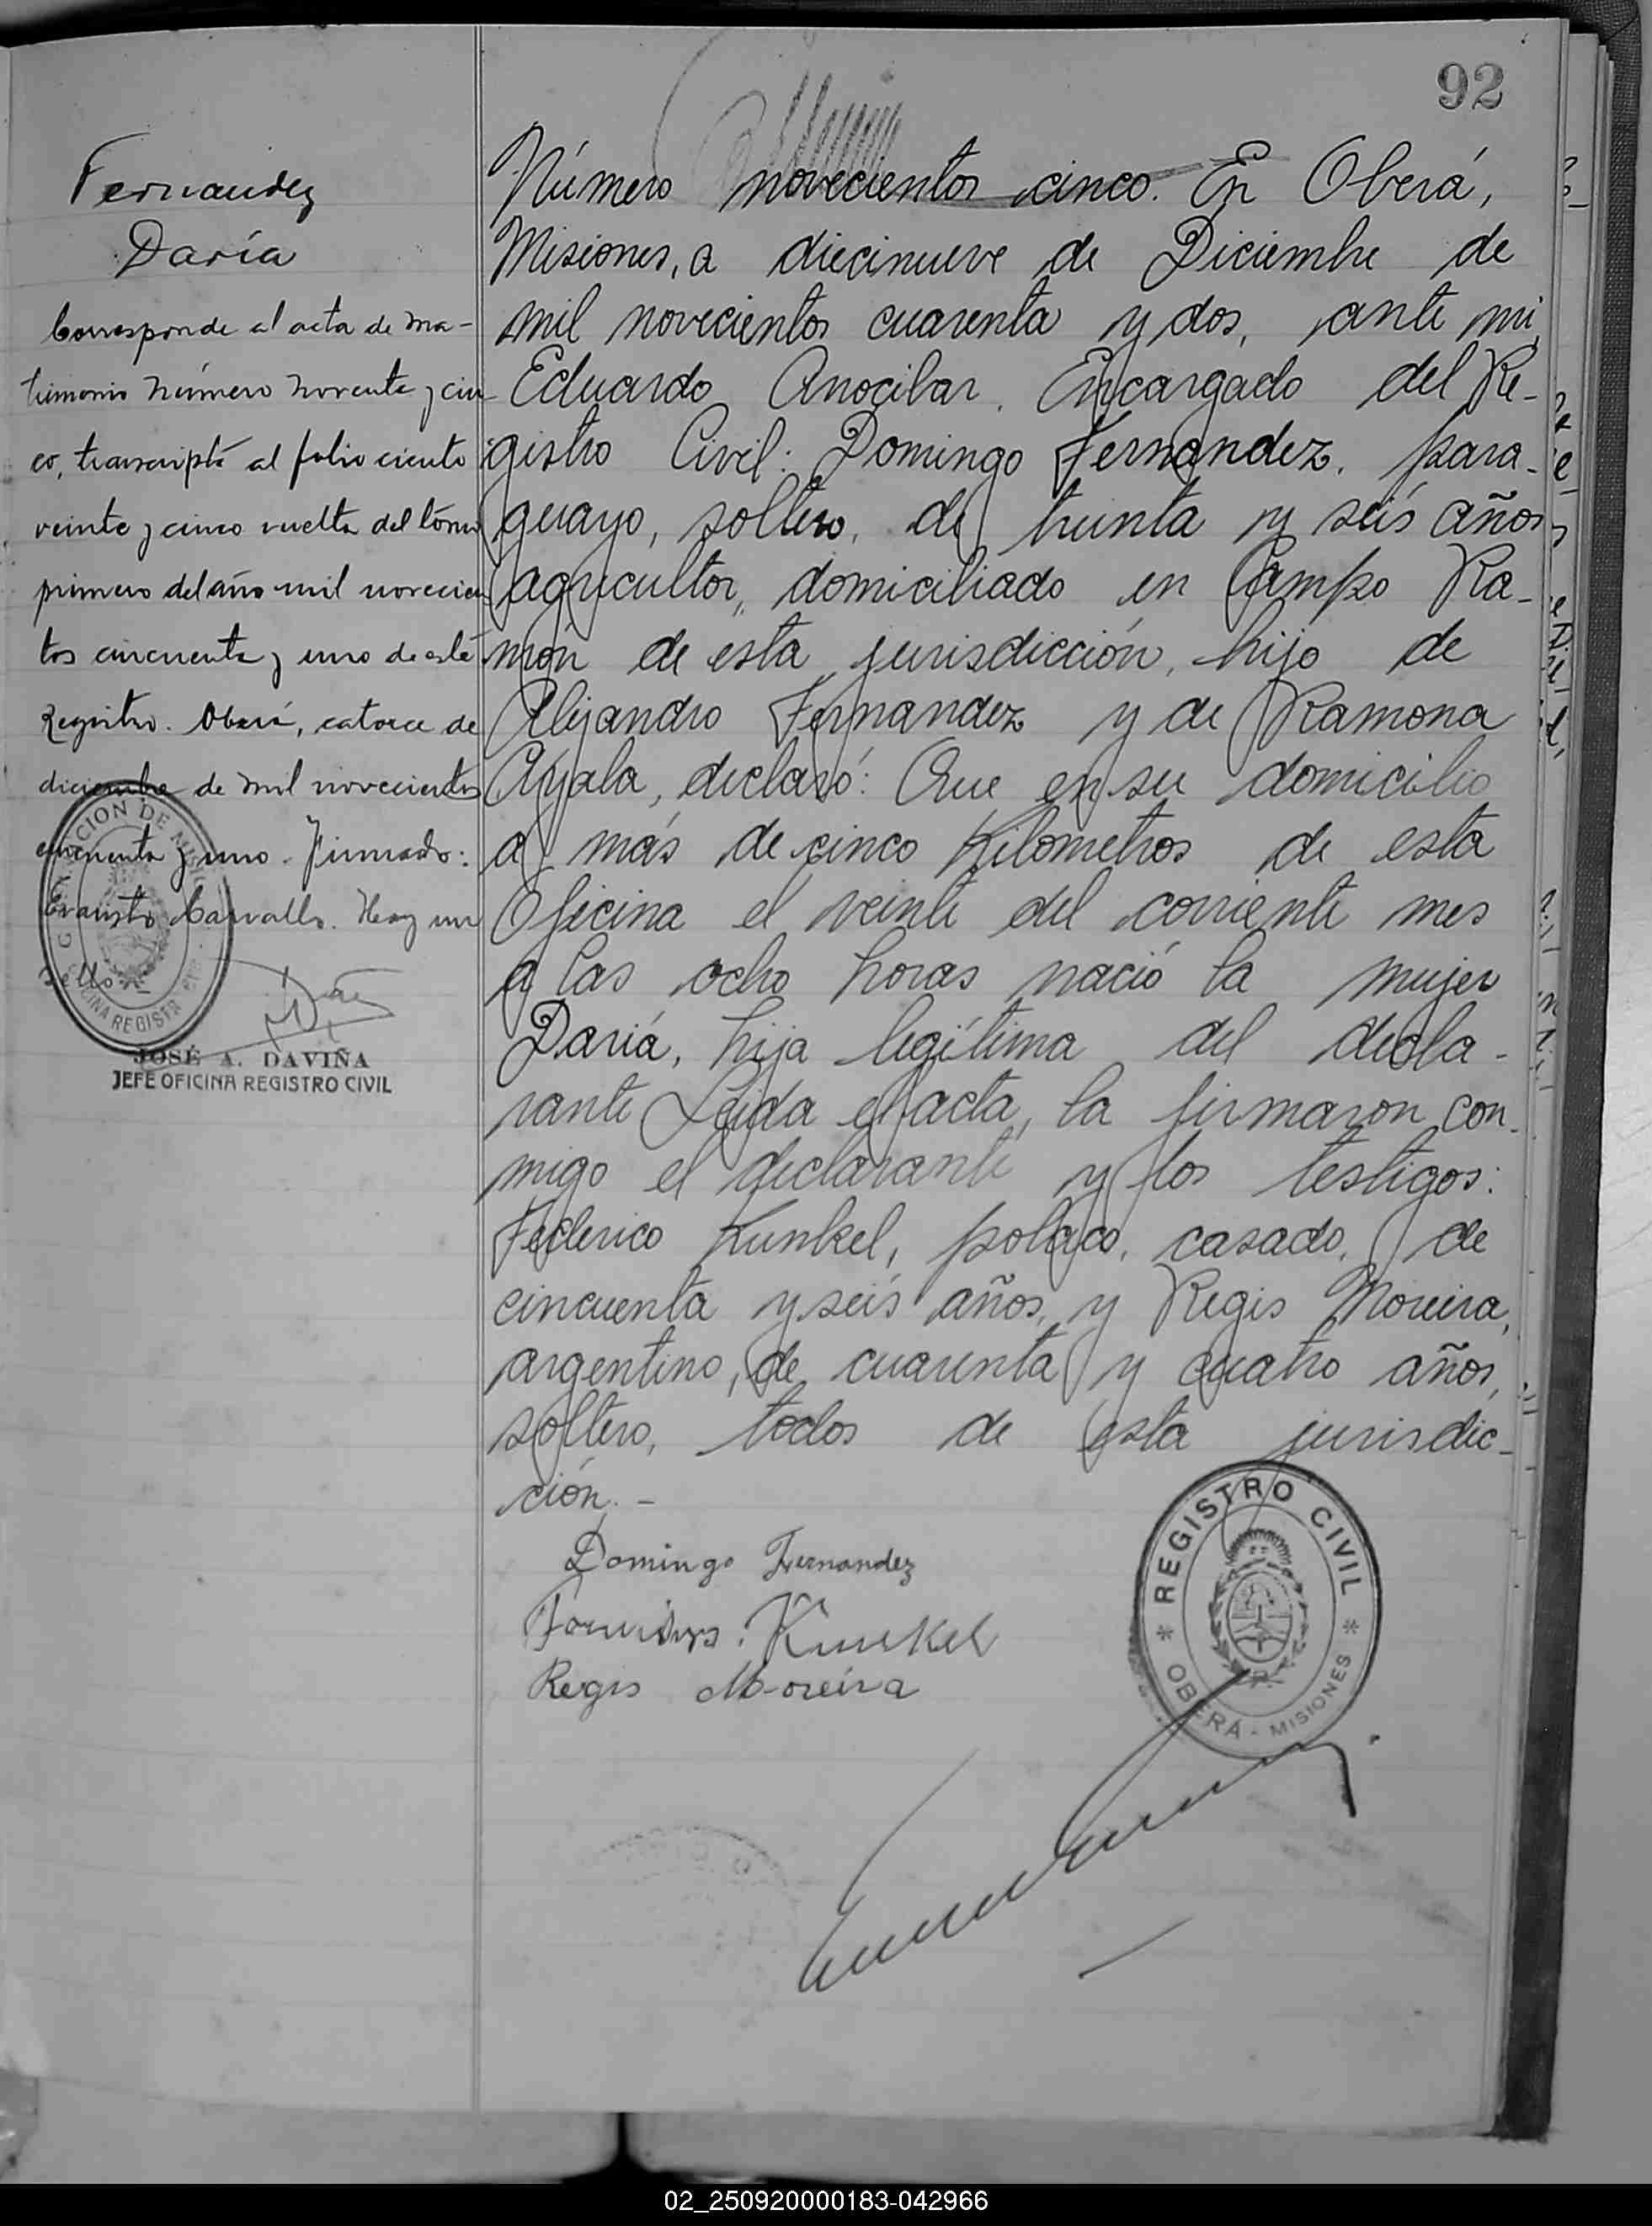 92
Fernandez
Daría
Corresponde al acta de ma-
trimonio número noventa y cin-
co, transcripta al folio ciento
veinte y cinco vuelta del tomo
primero del año mil novecien-
tos cincuenta y uno de este
Registro. Oberá, catorce de
diciembre de mil novecientos
cincuenta y uno. Firmado:
Evaristo Carvallo. Hay un
sello.-
GOBERNACION DE MISIONES
OFICINA REGISTRO CIVIL
JOSÉ A. DAVIÑA
JEFE OFICINA REGISTRO CIVIL
Número novecientos cinco. En Oberá,
Misiones, a diecinueve de Diciembre de
mil novecientos cuarenta y dos, ante mi,
Eduardo Anocibar, Encargado del Re-
gistro Civil: Domingo Fernandez, para-
guayo, soltero, de treinta y seis años
agricultor, domiciliado en Campo Ra-
món de esta jurisdicción, hijo de
Alejandro Fernandez y de Ramona
Ayala, declaró: Que en su domicilio
a más de cinco Kilometros de esta
Oficina el veinte del corriente mes
a las ocho horas nació la mujer
Daría, hija legítima del decla-
rante Leida el acta, la firmaron con-
migo el declarante y los testigos:
Federico Kunkel, polaco, casado, de
cincuenta y seis años, y Regis Moreira,
argentino, de cuarenta y cuatro años,
soltero, todos de esta jurisdic-
ción.-
Domingo Fernandez
Kunkel
Regis Moreira
REGISTRO CIVIL
OBERÁ - MISIONES
02_250920000183-042966